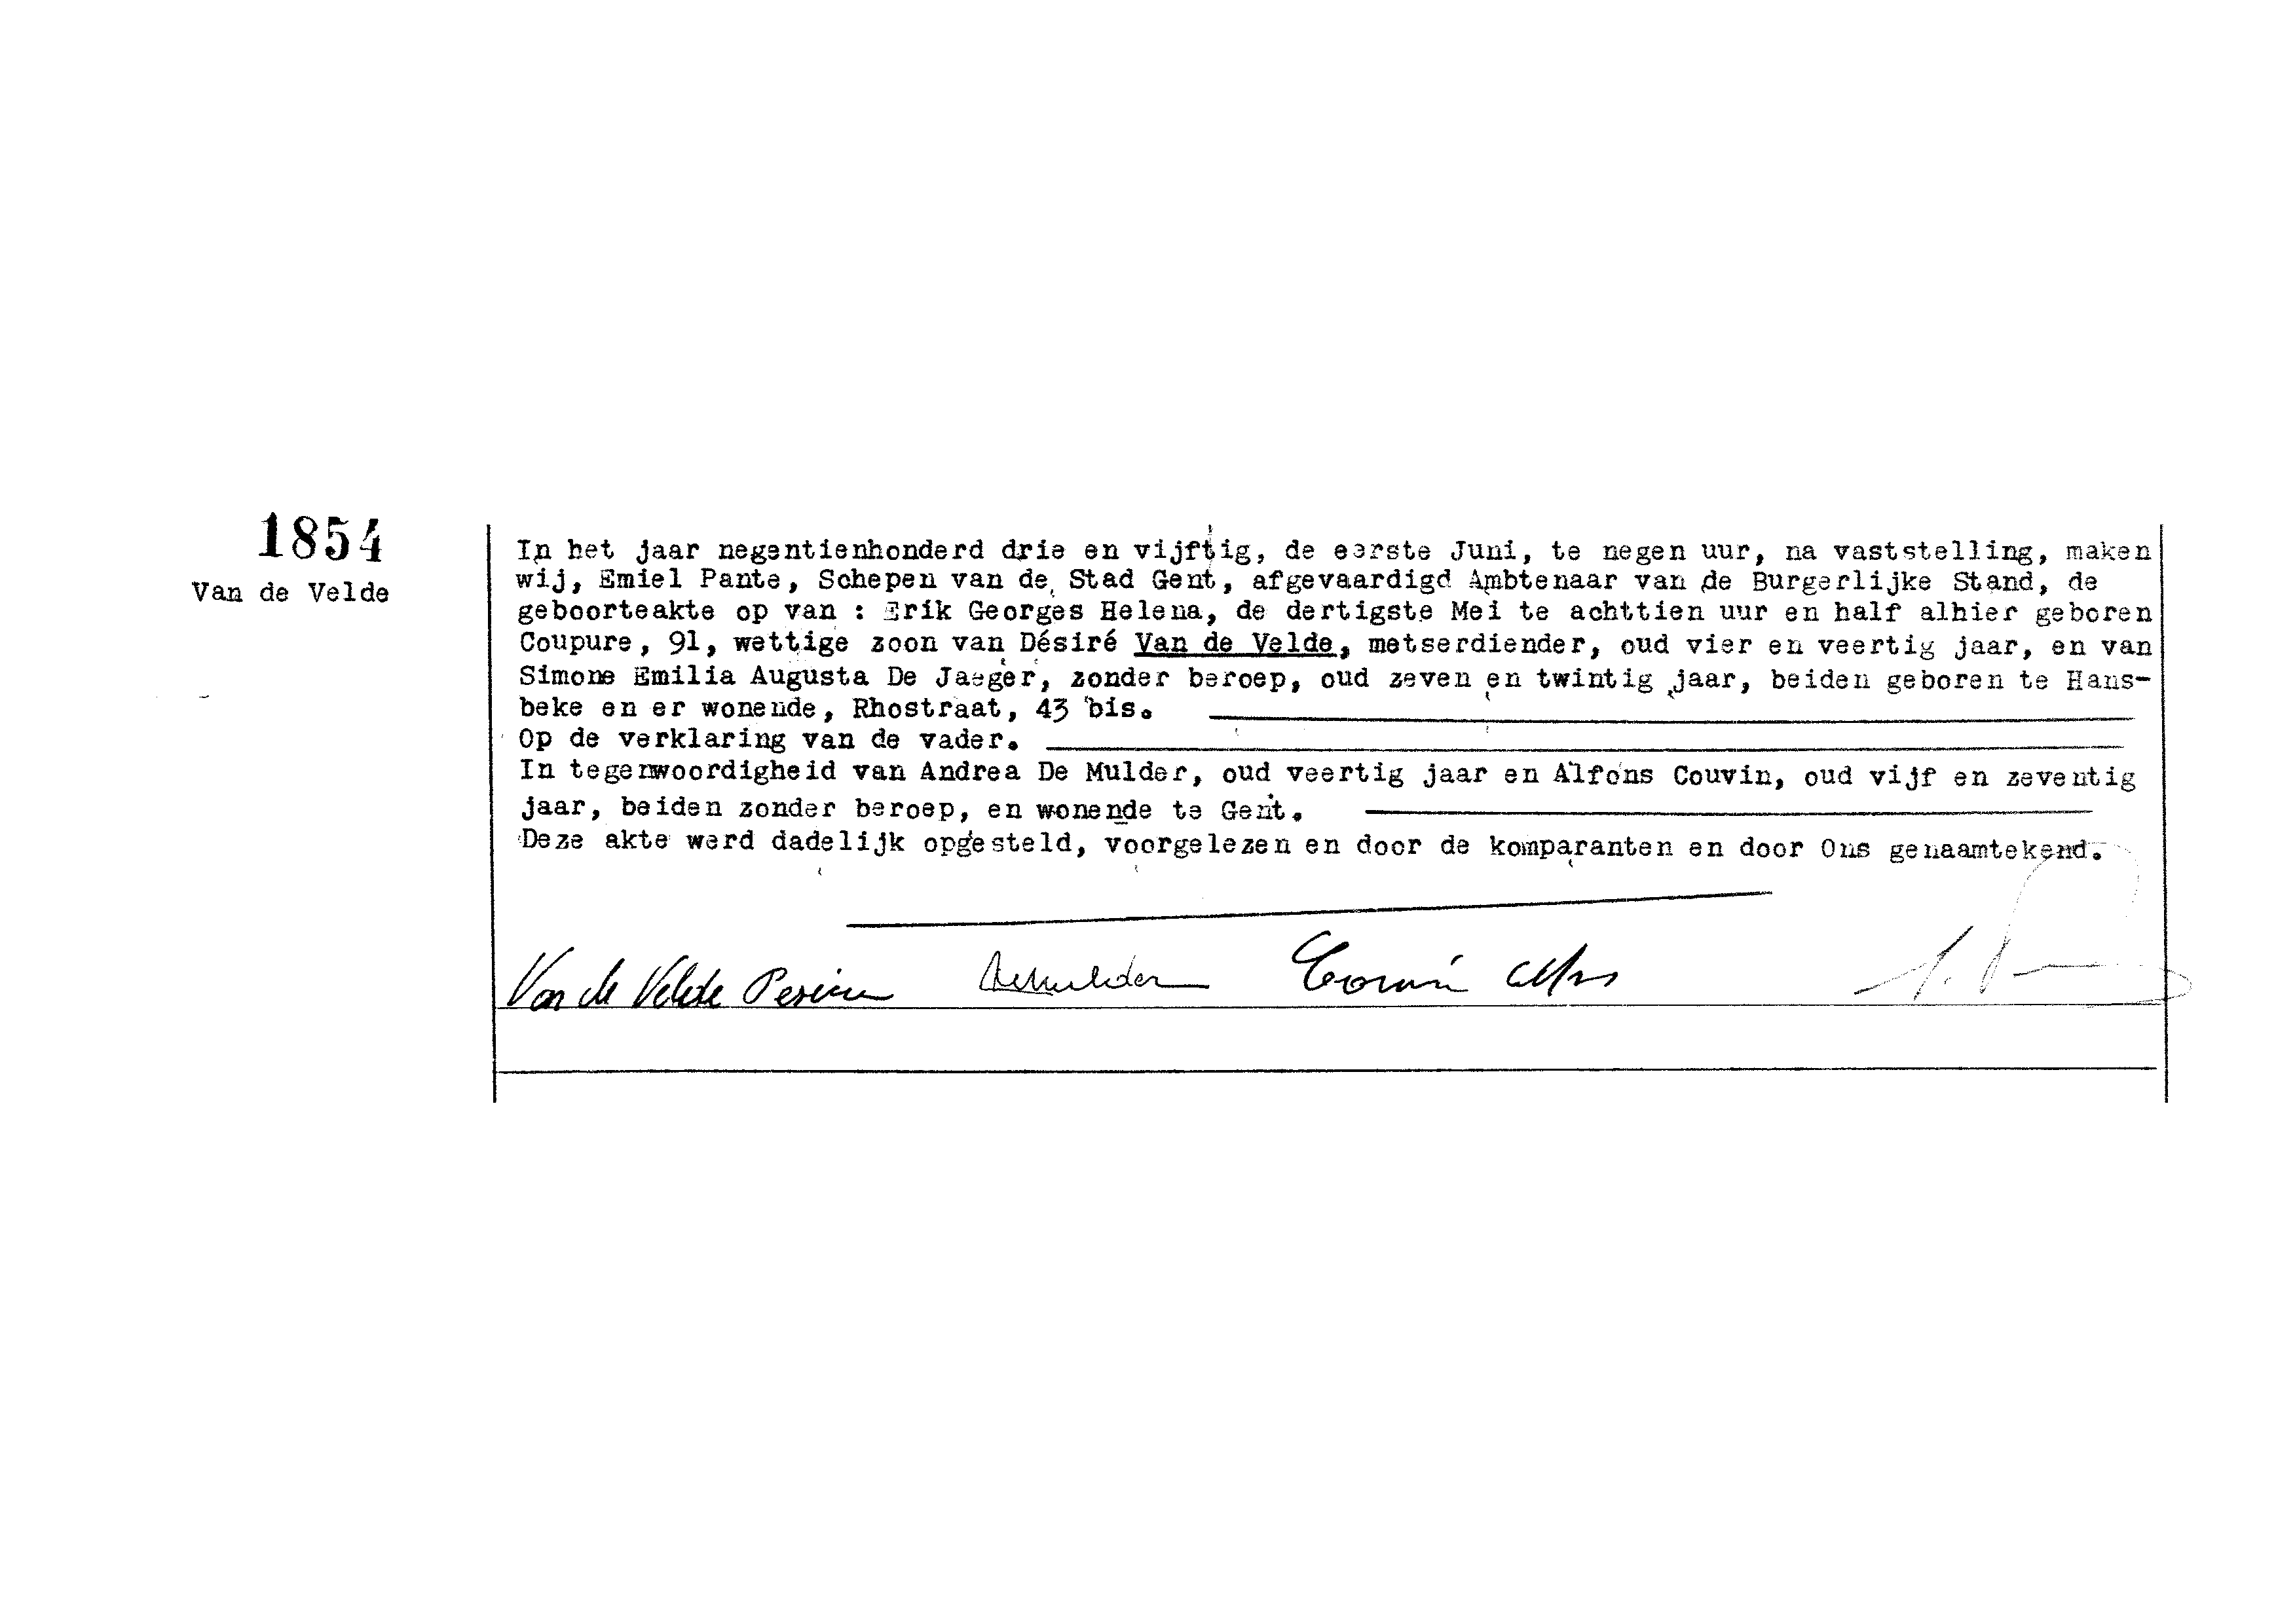 1854
Van de Velde
In het jaar negentienhonderd drie en vijftig, de eerste Juni, te negen uur, na vaststelling, maken
wij, Emiel Pante, Schepen van de Stad Gent, afgevaardigd Ambtenaar van de Burgerlijke Stand, de
geboorteakte op van : Erik Georges Helena, de dertigste Mei te achttien uur en half alhier geboren
Coupure, 91, wettige zoon van Désiré Van de Velde, metserdiender, oud vier en veertig jaar, en van
Simone Emilia Augusta De Jaeger, zonder beroep, oud zeven en twintig jaar, beiden geboren te Hans-
beke en er wonende, Rhostraat, 43 bis.
Op de verklaring van de vader.
In tegenwoordigheid van Andrea De Mulder, oud veertig jaar en Alfons Couvin, oud vijf en zeventig
jaar, beiden zonder beroep, en wonende te Gent.
Deze akte werd dadelijk opgesteld, voorgelezen en door de komparanten en door Ons genaamtekend.
Van de Velde DeMulder